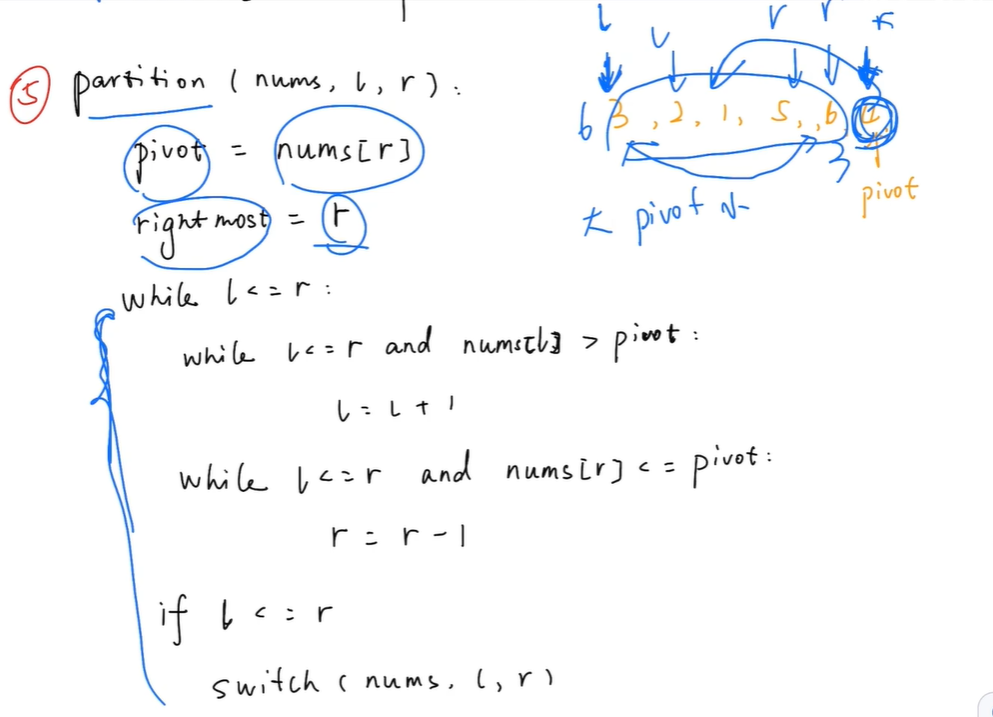 ⑤ partition (nums, l, r):
pivot = nums[r]
rightmost = r
while l <= r:
while l <= r and nums[l] > pivot:
l = l + 1
while l <= r and nums[r] <= pivot:
r = r - 1
if l <= r
switch (nums, l, r)
l l r r r
6 3, 2, 1, 5, 6, 4
3
大 pivot 小
pivot